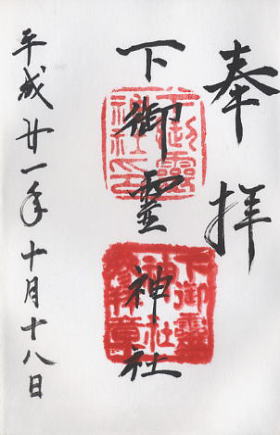 奉拝
下御霊神社
平成廿一年十月十八日
下御靈神社印